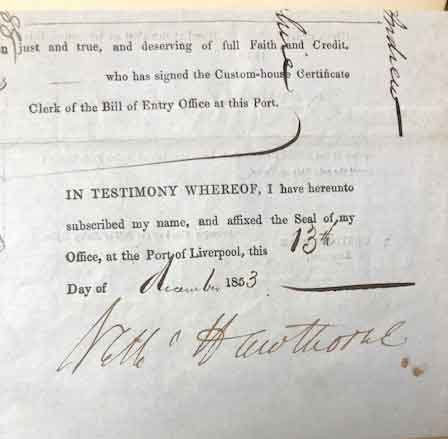 n just and true, and deserving of full Faith and Credit,
who has signed the Custom-house Certificate
Clerk of the Bill of Entry Office at this Port.
IN TESTIMONY WHEREOF, I have hereunto
subscribed my name, and affixed the Seal of my
Office, at the Port of Liverpool, this 13th
Day of december 1853
Nathl Hawthorne
Andrew